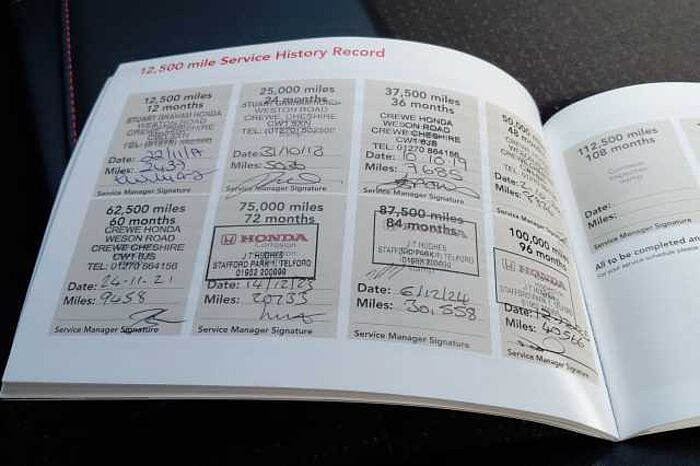 12,500 mile Service History Record
12,500 miles
12 months
STUART GRAHAM HONDA
WESTON ROAD
CREWE CHESHIRE
Date: 22/11/17
Miles: 2439
Service Manager Signature
25,000 miles
24 months
STUART GRAHAM HONDA
WESTON ROAD
CREWE, CHESHIRE
CW1 6XN
TEL: (01270) 502500
Date: 31/10/18
Miles: 5030
Service Manager Signature
37,500 miles
36 months
CREWE HONDA
WESON ROAD
CREWE CHESHIRE
CW1 6JS
TEL: 01270 864156
Date: 10.10.19
Miles: 9685
Service Manager Signature
50,000
48 months
Date:
Miles:
Service Manager Signature
62,500 miles
60 months
CREWE HONDA
WESON ROAD
CREWE CHESHIRE
CW1 6JS
TEL: 01270 864156
Date: 24-11-21
Miles: 9458
Service Manager Signature
75,000 miles
72 months
HONDA
J T HUGHES
STAFFORD PARK 1 TELFORD
Date: 14/12/23
Miles: 20733
Service Manager Signature
87,500 miles
84 months
J T HUGHES
STAFFORD PARK 1 TELFORD
Date: 6/12/24
Miles: 30,558
Service Manager Signature
100,000 miles
96 months
HONDA
J T HUGHES
Date:
Miles: 40566
Service Manager Signature
112,500 miles
108 months
Corrosion
inspection
stamp
Date:
Miles:
Service Manager Signature
All to be completed an